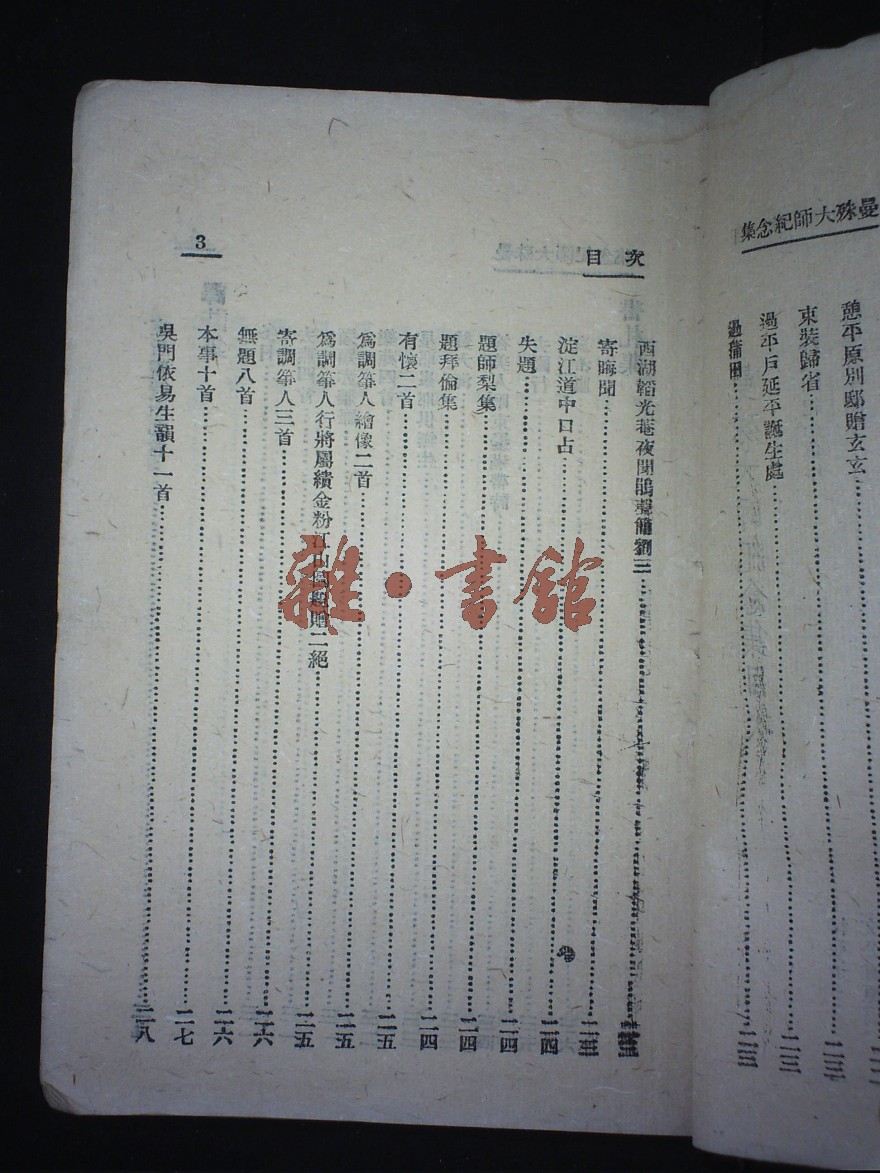 曼殊大師紀念集
憩平原別邸贈玄玄
東裝歸省……二三
過平戶延平誕生處……二三
過蒲田……二三
目次
3
西湖韜光菴夜聞鵑聲簡劉三……
寄晦聞……二三
淀江道中口占……二四
失題……二四
題師梨集……二四
題拜倫集……二四
有懷二首……二五
爲調箏人繪像二首……二五
爲調箏人行將屬績金粉江山圖題贈二絕……二五
寄調箏人三首……二六
無題八首……二六
本事十首……二七
吳門依易生韻十一首……二八
雜·書館